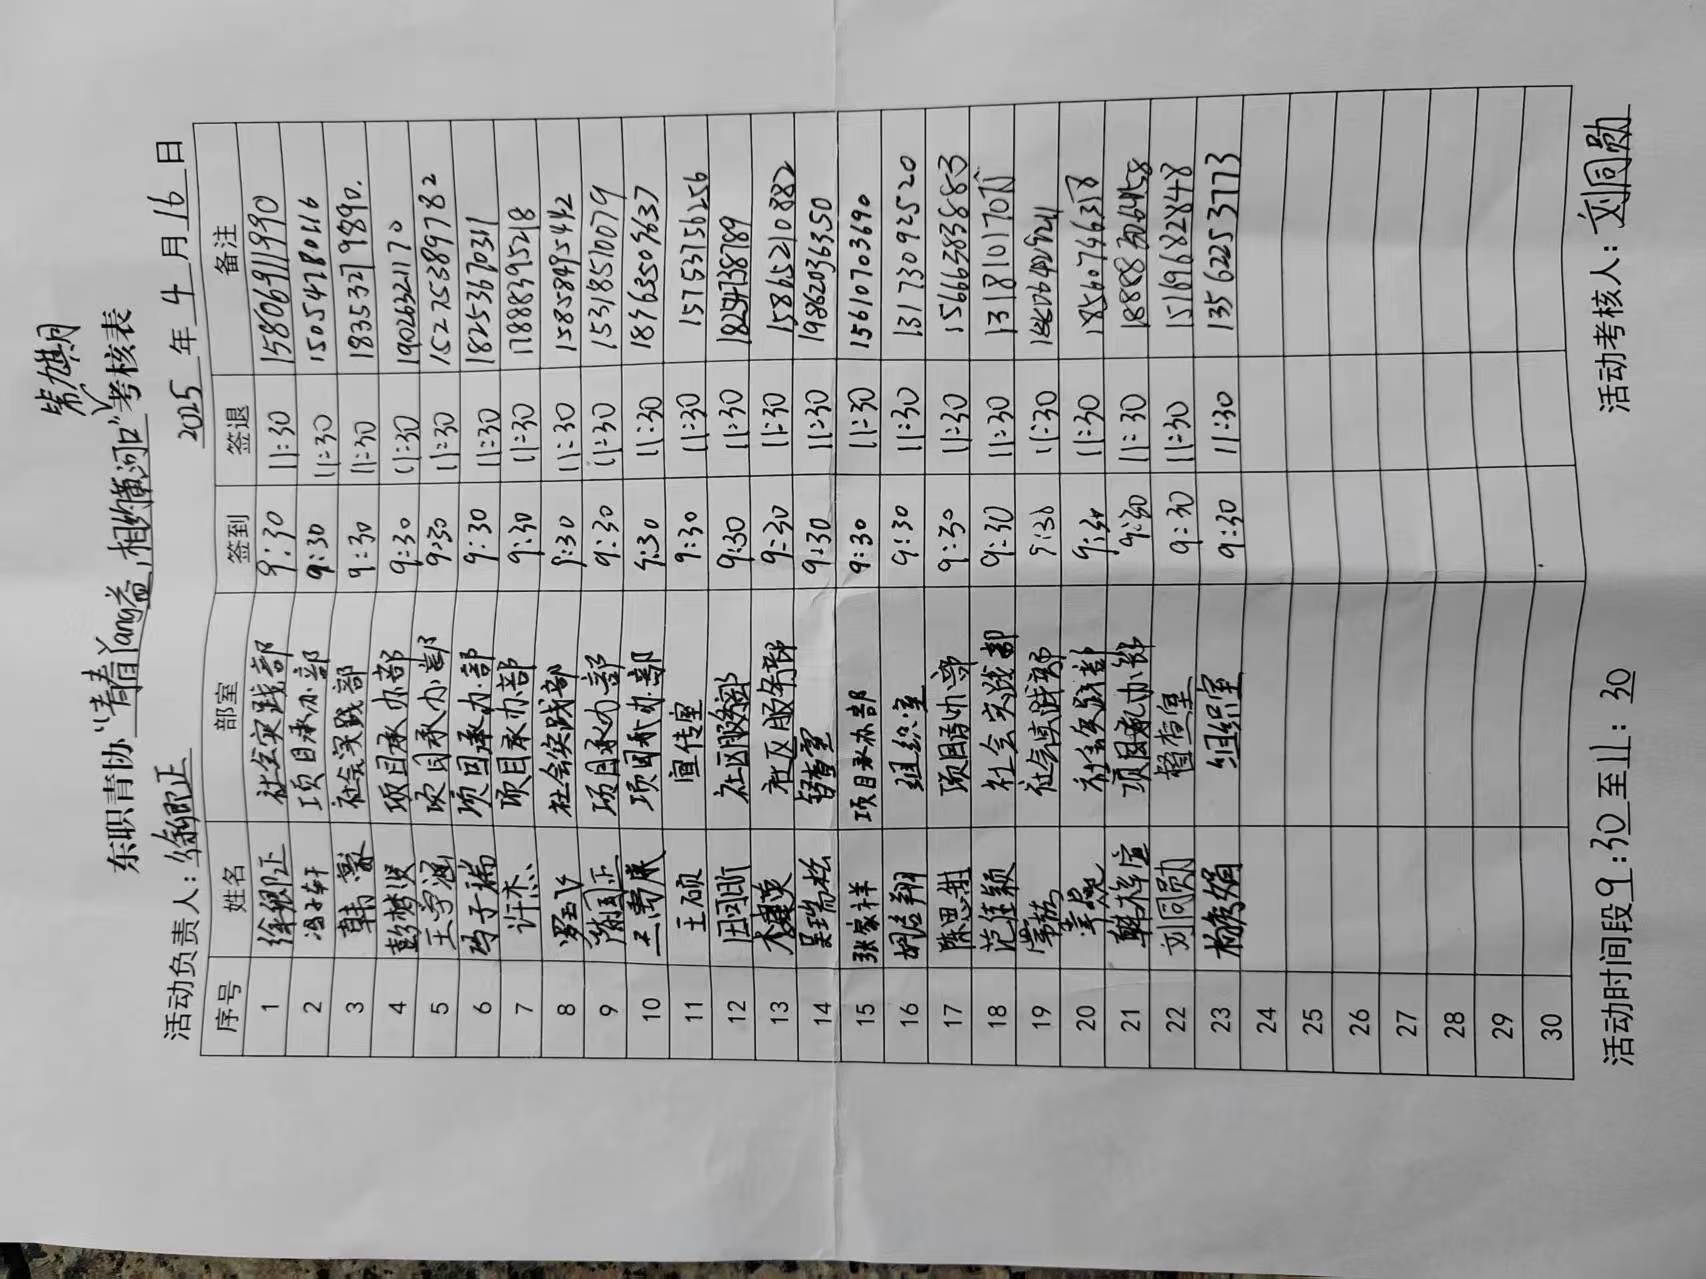 第 期
东职青协“青春Yang益,相约黄河口”考核表
活动负责人:徐即正 2025 年 4 月 16 日
序号 姓名 部室 签到 签退 备注
1 徐即正 社会实践部 9:30 11:30 15806911990
2 冯轩 项目承办部 9:30 11:30 15054780116
3 韩 社会实践部 9:30 11:30 18353279890.
4 彭梦 项目承办部 9:30 11:30 19026321170
5 王宇涵 项目承办部 9:30 11:30 15275389782
6 于瑞 项目承办部 9:30 11:30 18253670311
7 许杰 项目承办部 9:30 11:30 17888395218
8 社会实践部 9:30 11:30 15858495442
9 国正 项目承办部 9:30 11:30 15318570079
10 项目承办部 9:30 11:30 18463509637
11 王硕 宣传室 9:30 11:30 15753756256
12 田雨昕 社区服务部 9:30 11:30 18254738789
13 社区服务部 9:30 11:30 15865210882
14 吴瑞松 督查室 9:30 11:30 19862036350
15 张家祥 项目承办部 9:30 11:30 15610703690
16 翔 组织室 9:30 11:30 13173092520
17 陈思 项目承办部 9:30 11:30 15666383883
18 范佳颖 社会实践部 9:30 11:30
19 常 社会实践部 9:30 11:30
20 社会实践部 9:30 11:30 18560746318
21 韩 项目承办部 9:30 11:30 18888306458
22 刘同勋 督查室 9:30 11:30 15169682848
23 杨 娟 组织室 9:30 11:30 13562253773
24
25
26
27
28
29
30
活动时间段9:30至11:30 活动考核人:刘同勋